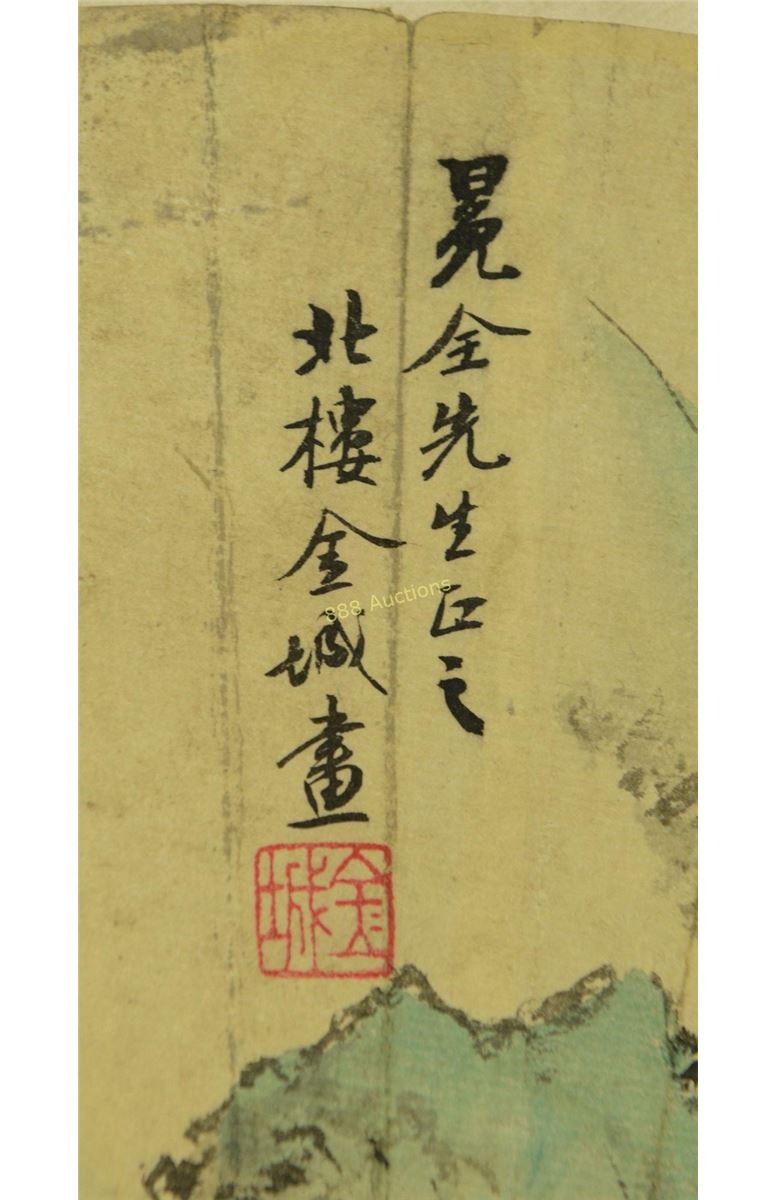 冕全先生正之
北樓金城畫
金城
888 Auctions